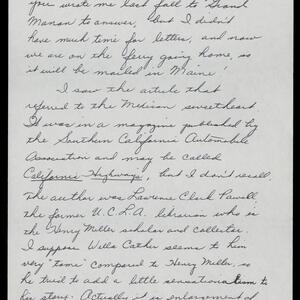 you wrote me last fall to Grand
Manan to answer, but I didn't
have much time for letters, and now
we are on the ferry going home, so
it will be mailed in Maine!
I saw the article that
referred to the Mexican sweetheart.
It was in a magazine published by
the Southern California Automobile
Association and may be called
California Highways, but I don't recall.
The author was Lawrence Clark Powell,
the former U.C.L.A. librarian who is
the Henry Miller scholar and collector.
I suppose Willa Cather seems to him
very "tame" compared to Henry Miller, so
he tried to add a little sensationalism to
his story. Actually it is an